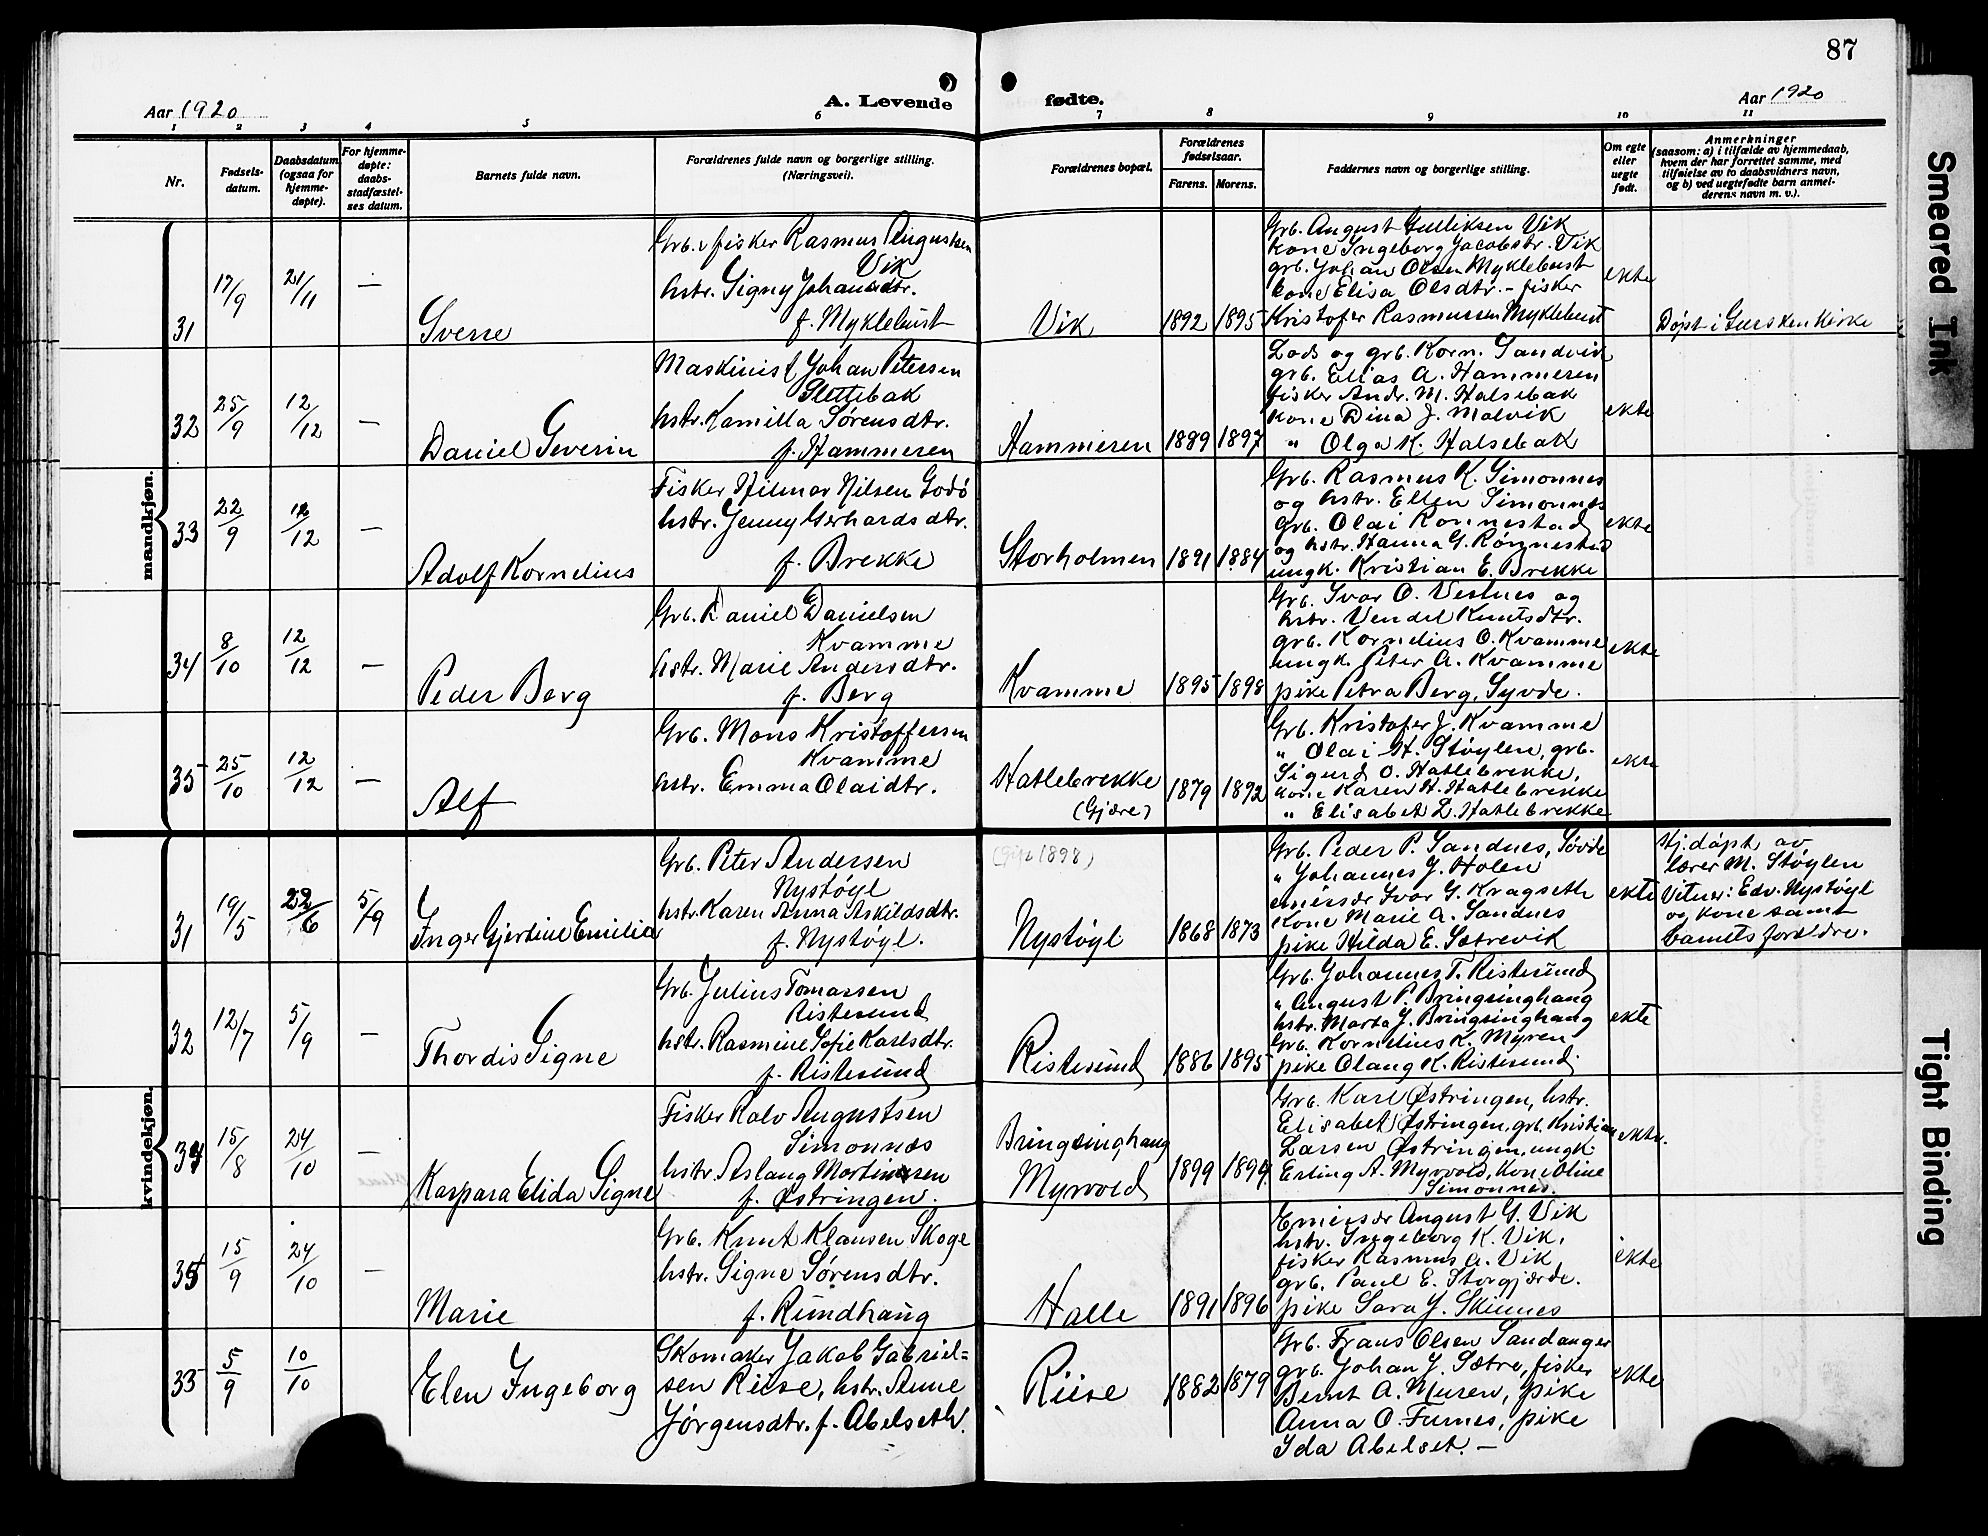 87
Aar 1920
A. Levende fødte.
Aar 1920
1 2 3 4 5 6 7 8 9 10 11
Nr.
Fødsels-
datum.
Daabsdatum
(ogsaa for
hjemme-
døpte).
For hjemme-
døpte:
daabs-
stadfæstel-
ses datum.
Barnets fulde navn.
Forældrenes fulde navn og borgerlige stilling.
(Næringsvei).
Forældrenes bopæl.
Forældrenes
fødselsaar.
Farens. Morens.
Faddernes navn og borgerlige stilling.
Om egte
eller
uegte
født.
Anmerkninger
(saasom: a) i tilfælde av hjemmedaab,
hvem der har forrettet samme, med
tilføielse av to daabsvidners navn,
og b) ved uegtefødte barn anmel-
derens navn m. v.).
mandkjøn.
31
17/9
21/11
—
Sverre
Grb. & fisker Rasmus Augustsen
Vik
hstr. Signy Johansdtr.
f. Myklebust
Vik
1892 1895
Grb. August Gulliksen Vik
kone Ingeborg Jacobstr. Vik
grb. Johan Olsen Myklebust
kone Elisa Olsdtr. - fisker
Kristofer Rasmussen Myklebust
ekte
Døpt i Gursken kirke
32
25/9
12/12
—
Daniel Severin
Maskinist Johan Petersen
Slettebak
hstr. Kamilla Sørensdtr.
f. Hammeren
Hammeren
1889 1897
Lods og grb. Korn. Sandvik
grb. Elias A. Hammeren
fisker Andr. M. Halsebak
kone Dina J. Malvik
" Olga K. Halsebak
ekte
33
22/9
12/12
—
Adolf Kornelius
Fisker Hilmar Nilsen Godø
hstr. Jenny Gerhardsdtr.
f. Brekke
Storholmen
1891 1884
Grb. Rasmus K. Simonnes
og hstr. Ellen Simonnes
grb. Olai Rønnestad
og hstr. Hanna G. Rønnestad
ungk. Kristian E. Brekke
ekte
34
8/10
12/12
—
Peder Berg
Grb. Daniel Danielsen
Kvamme
hstr. Marie Andersdtr.
f. Berg
Kvamme
1895 1898
Grb. Ivar O. Vestnes og
hstr. Vendel Knutsdtr.
grb. Kornelius O. Kvamme
ungk. Peter A. Kvamme
pike Petra Berg, Syvde.
ekte
35
25/10
12/12
—
Alf
Grb. Mons Kristoffersen
Kvamme
hstr. Emma Olaidtr.
Hatlebrekke
(Gjære)
1879 1892
Grb. Kristofer J. Kvamme
" Olai H. Støylen, grb.
Sigurd O. Hatlebrekke,
kone Karen H. Hatlebrekke
" Elisabet L. Hatlebrekke
ekte
kvindekjøn.
31
19/5
22/6
5/9
Inger Gjertine Emilia
Grb. Peter Andersen
Nystøyl
hstr. Karen Anna Askildsdtr.
f. Nystøyl.
(Gift 1898)
Nystøyl
1868 1873
Grb. Peder P. Sandnes, Søvde
" Johannes J. Holen
emissær Ivar G. Kragseth
Kone Marie A. Sandnes
pike Hilda E. Sætrevik
ekte
Hj. døpt av
lærer M. Støylen
Vitner: Edv. Nystøyl
og kone samt
barnets foreldre.
32
12/7
5/9
—
Thordis Signe
Grb. Julius Tomassen
Ristesund
hstr. Rasmine Sofie Karlsdtr.
f. Ristesund
Ristesund
1886 1895
Grb. Johannes T. Ristesund
" August P. Bringsinghaug
hstr. Marta J. Bringsinghaug
Grb. Kornelius K. Myren
pike Olaug K. Ristesund
ekte
34
15/8
24/10
—
Kaspara Elida Signe
Fisker Kalv Augustsen
Simonnæs
hstr. Aslaug Martinsen
f. Østringen.
Bringsinghaug
Myrvold
1899 1899
Grb. Karl Østringen, hstr.
Elisabet Østringen, grb. Kristian
Larsen Østringen, ungk
Erling A. Myrvold, kone Oline
Simonnes.
ekte.
35
15/9
24/10
—
Marie
Grb. Knut Klausen Skoge
hstr. Signe Sørensdtr.
f. Rundhaug
Halle
1891 1896
Emissær August G. Vik
hstr. Ingeborg K. Vik,
fisker Rasmus A. Vik
grb. Paul E. Storgjærde.
pike Sara J. Skinnes
ekte
33
5/9
10/10
Elen Ingeborg
Skomaker Jakob Gabriel=
sen Riise, hstr. Anne
Jørgensdtr. f. Abelseth.
Riise
1882 1879
Grb. Frans Olsen Sandanger
grb. Johan J. Sætre, fisker
Bernt A. Muren, pike
Anna O. Furnes, pike
Ida Abelset. —
ekte
Smeared Ink
Tight Binding